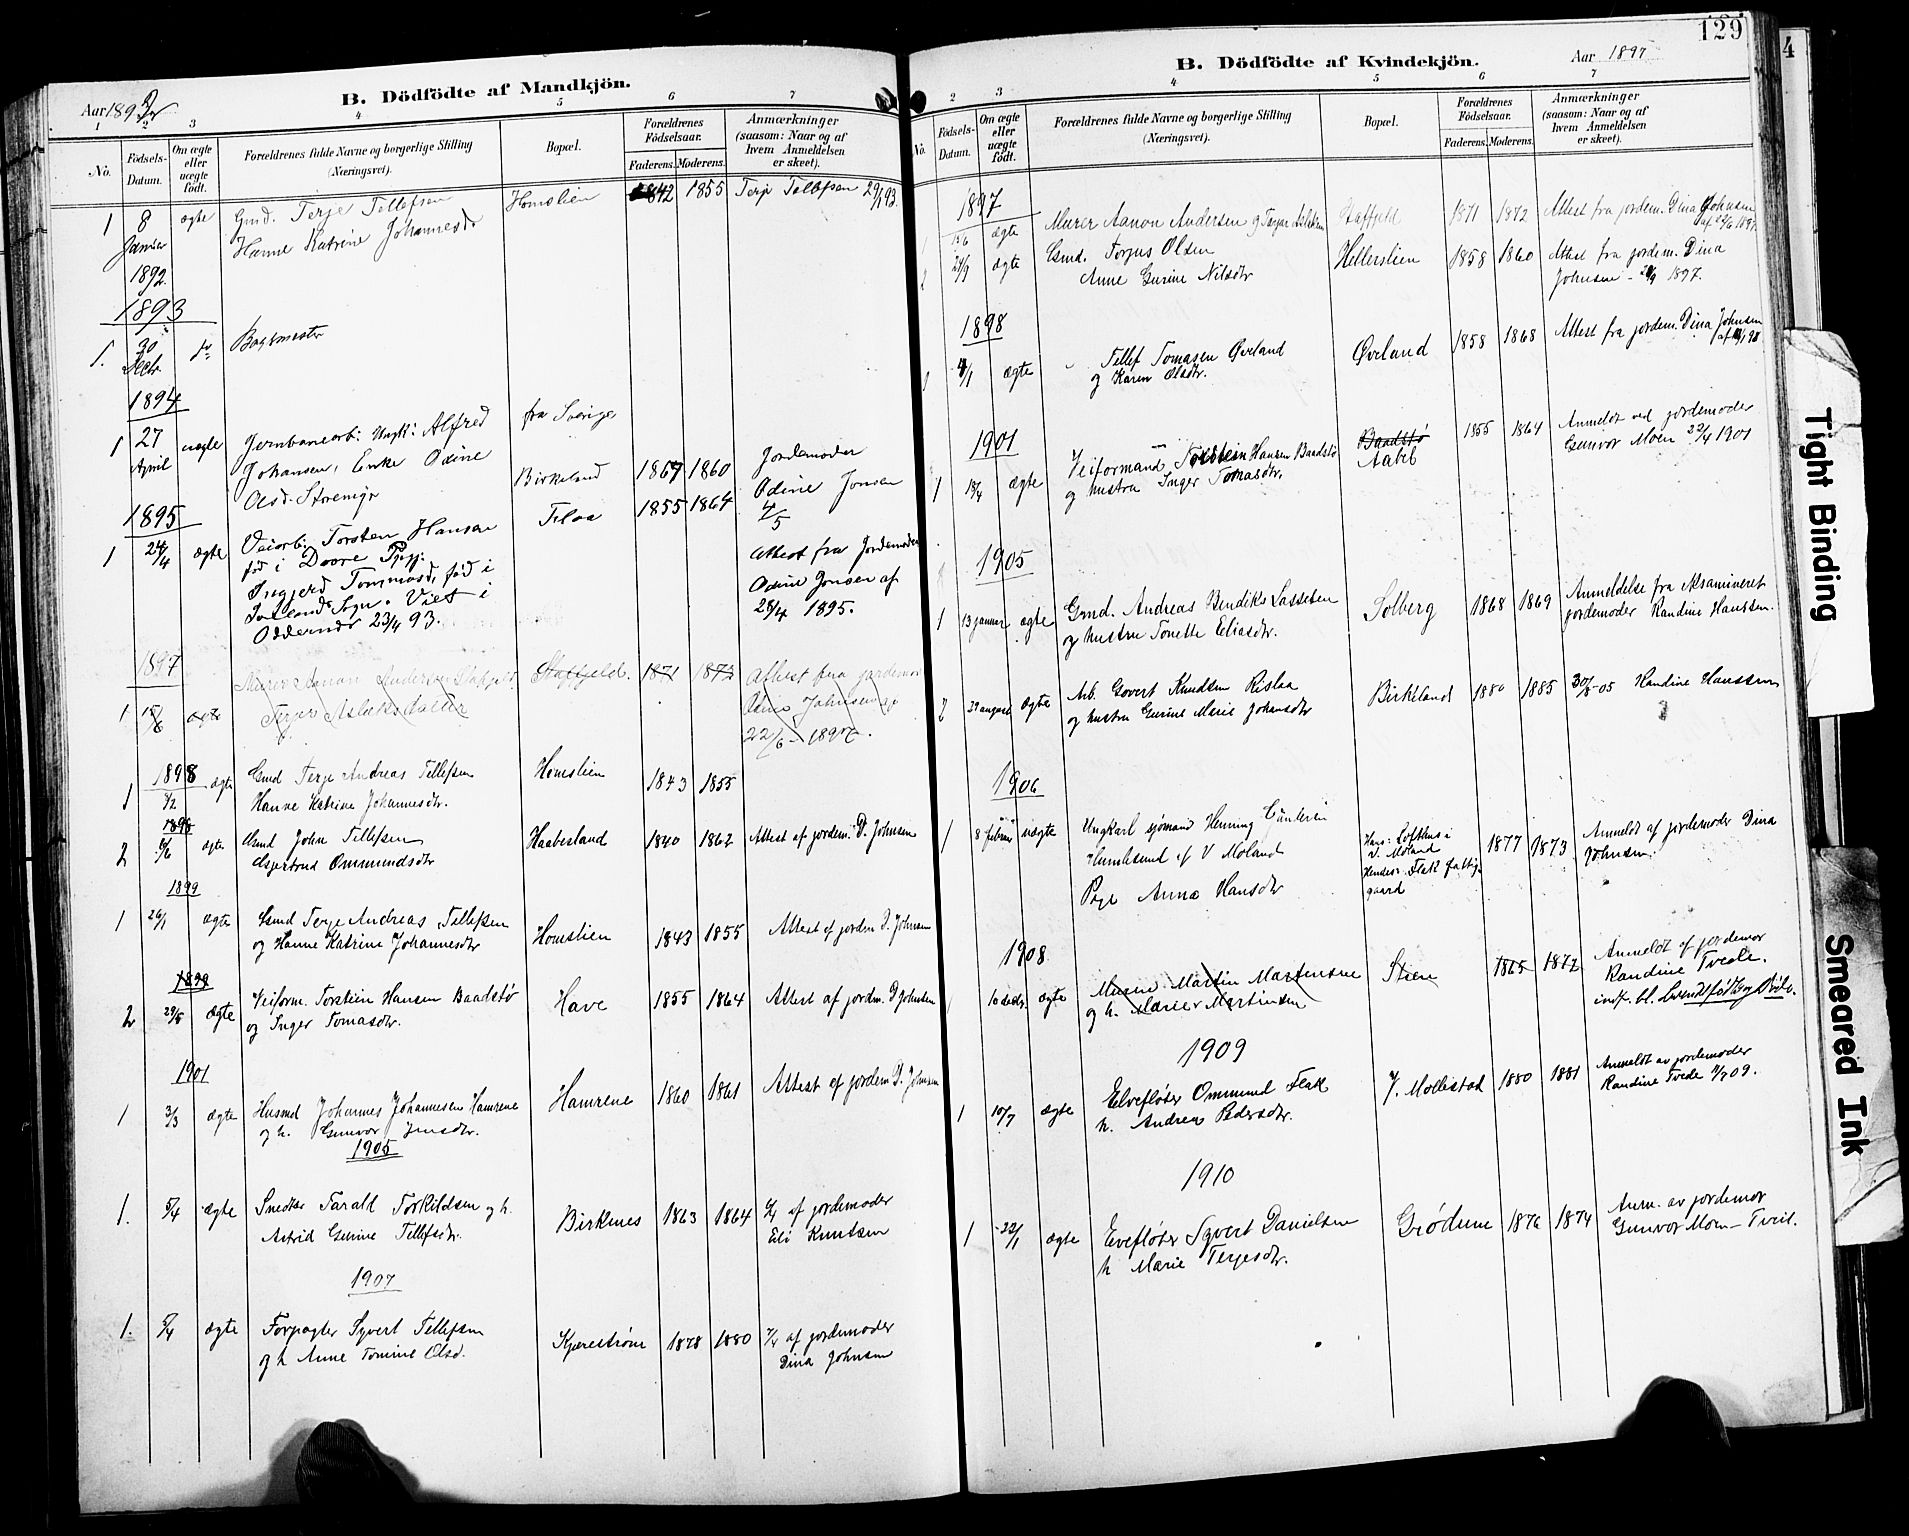 129
4
Aar 1892
B. Dödfödte af Mandkjön.
1 2 3 4 5 6 7
No.
Födsels-Datum.
Om ægte eller uægte födt.
Forældrenes fulde Navne og borgerlige Stilling (Næringsvei).
Bopæl.
Forældrenes Födselsaar.
Faderens. Moderens.
Anmærkninger (saasom: Naar og af hvem Anmeldelsen er skeet).
1 8 ægte Gmd. Terje Tellefsen Homslien 1842 1855 Terje Tellefsen 29/1 93.
Januar Hanne Katrine Johannesdr
1892
1893
1. 30 Decbr. Bogsmester
1894
1 27 April uægte Jernbanearb: Ungk: Alfred fra Sverige
Johansen, Enke Odine Birkeland 1867 1860 Jordemoder
Olsd. Storemyr Odine Jonsen
4/5
1895
1 24/4 ægte Veiarb: Torsten Hansen Tilaa 1855 1864
fød i Dovre Prgj: Attest fra Jordemoder
Ingjerd Tommasd, fød i Odine Jonsen af
Sogn. Viet i 28/4 1895.
Oddernes 23/4 93.
1897
1 15/6 ægte Murer Aanon Andersen Stapfjeld. 1871 1872 Attest fra jordemor
Terjer Aslaksdatter Dina Johnsen
22/6 - 1897.
1898
1 9/2 ægte Gmd Terje Andreas Tellefsen Homslien 1843 1855
Hanne Katrine Johannesdtr.
1898
2 5/6 ægte Gmd John Tellefsen Haabesland 1840 1862 Attest af jordem. D. Johnsen
Gjertrud Ommundsdtr
1899
1 26/1 ægte Gmd Terje Andreas Tellefsen Homslien 1843 1855 Attest af jordem D. Johnsen
og Hanne Katrine Johannesdtr
1899
2 29/5 ægte Veiform. Torstein Hansen Baadstø Have 1855 1864 Attest af jordm. D Johnsen
og Inger Tomasdtr.
1901
1 3/3 ægte Husmd Johannes Johannesen Hamrene Hamrene 1860 1861 Attest af jordem D. Johnsen
og h. Gunvor Jensdtr.
1905
1. 5/4 ægte Snedker Tarald Torkildsen og h. Birkenes 1863 1864 af jordemoder
Astrid Gurine Tellefsdtr. Eli Knutsen
1907
1. 5/4 ægte Forpagter Syvert Tellefsen Kjærestrøm 1878 1880 7/4 af jordemoder
og h Anne Tomine Olsd. Dina Johnsen
B. Dödfödte af Kvindekjön.
Aar 1897
2 3 4 5 6 7
No.
Födsels-Datum.
Om ægte eller uægte födt.
Forældrenes fulde Navne og borgerlige Stilling (Næringsvei).
Bopæl.
Forældrenes Födselsaar.
Faderens. Moderens.
Anmærkninger (saasom: Naar og af hvem Anmeldelsen er skeet).
1897
1 15/6 ægte Murer Aanon Andersen og Terjer Aslaksen Stapfjeld 1871 1872 Attest fra jordem. Dina Johnsen
af 22/6 1897.
2 24/9 ægte Gmd. Torjus Olsen Hellerslien 1858 1860 Attest fra jordem. Dina
Anne Gurine Nilsdtr Johnsen - 1897.
1898
1 4/1 ægte Tellef Tomasen Øveland Øveland 1858 1868 Attest fra jordem. Dina Johnsen
og Karen Olsdtr.
1901
1 18/4 ægte Veiformand Torstein Hansen Baadstø Baadstø 1855 1864 Anmeldt ved jordemoder
og hustru Inger Tomasdtr. Aabel Gunvor Moen 22/4 1901
1905
1 13 januar ægte Grmd. Andreas Bendiks Lassesen Solberg 1868 1869 Anmeldelse fra Aksamineret
og hustru Tonette Eliasdtr. jordemoder Randine Hanssen.
2 29 august ægte Arb. Govert Knudsen Rislaa Birkeland 1880 1885 30/8-05 Randine Hanssen
og hustru Gurine Marie Johansdtr
1906
1 8 februar uægte Ungkarl sjømand Henning 1877 1873 Anmeldt af jordemoder Dina
af V Moland Hans: Lofthus i Johnsen.
V. Moland
Pige Anna Hansdtr Hendes: Flak fattig-
gaard
1908
1 ægte Murer Martin Martinsen Stien 1865 1872 Anmeldt af jordemor
og h. Marie Martinsen Randine Tvede.
indf. bl. levendefødte og Døde.
1909
1 10/7 ægte Elvefløter Ommund Flak V. Mollestad 1880 1881 Anmeldt av jordemoder
h. Andrea Pedersdtr. Randine Tvede 09.
1910
1 22/1 ægte Elvefløter Syvert Danielsen Grødum 1876 1874 Anm. av jordemor
h Marie Terjesdtr. Gunvor Moen - Tveit.
Tight Binding
Smeared Ink